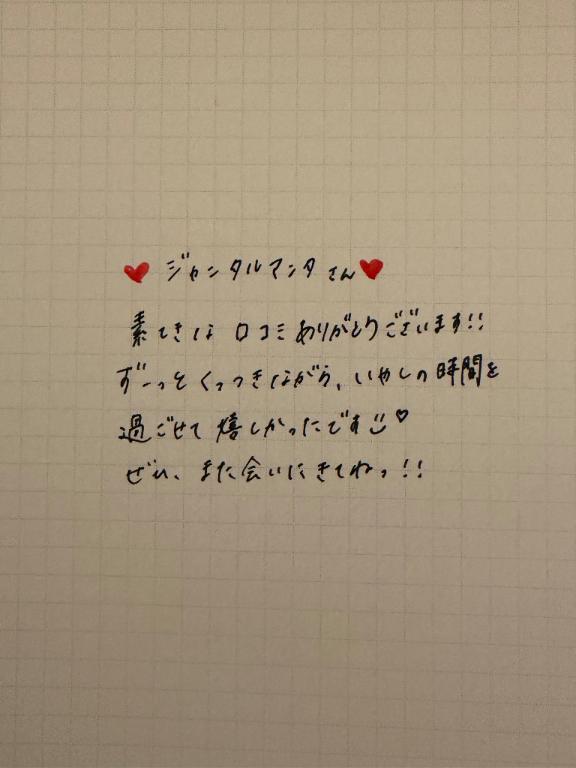 ♥ジャンタルマンタさん♥
素てきな口コミありがとうございます!!
ずーっとくっつきながら、いやしの時間を
過ごせて嬉しかったです♡
ぜひ、また会いにきてねっ!!